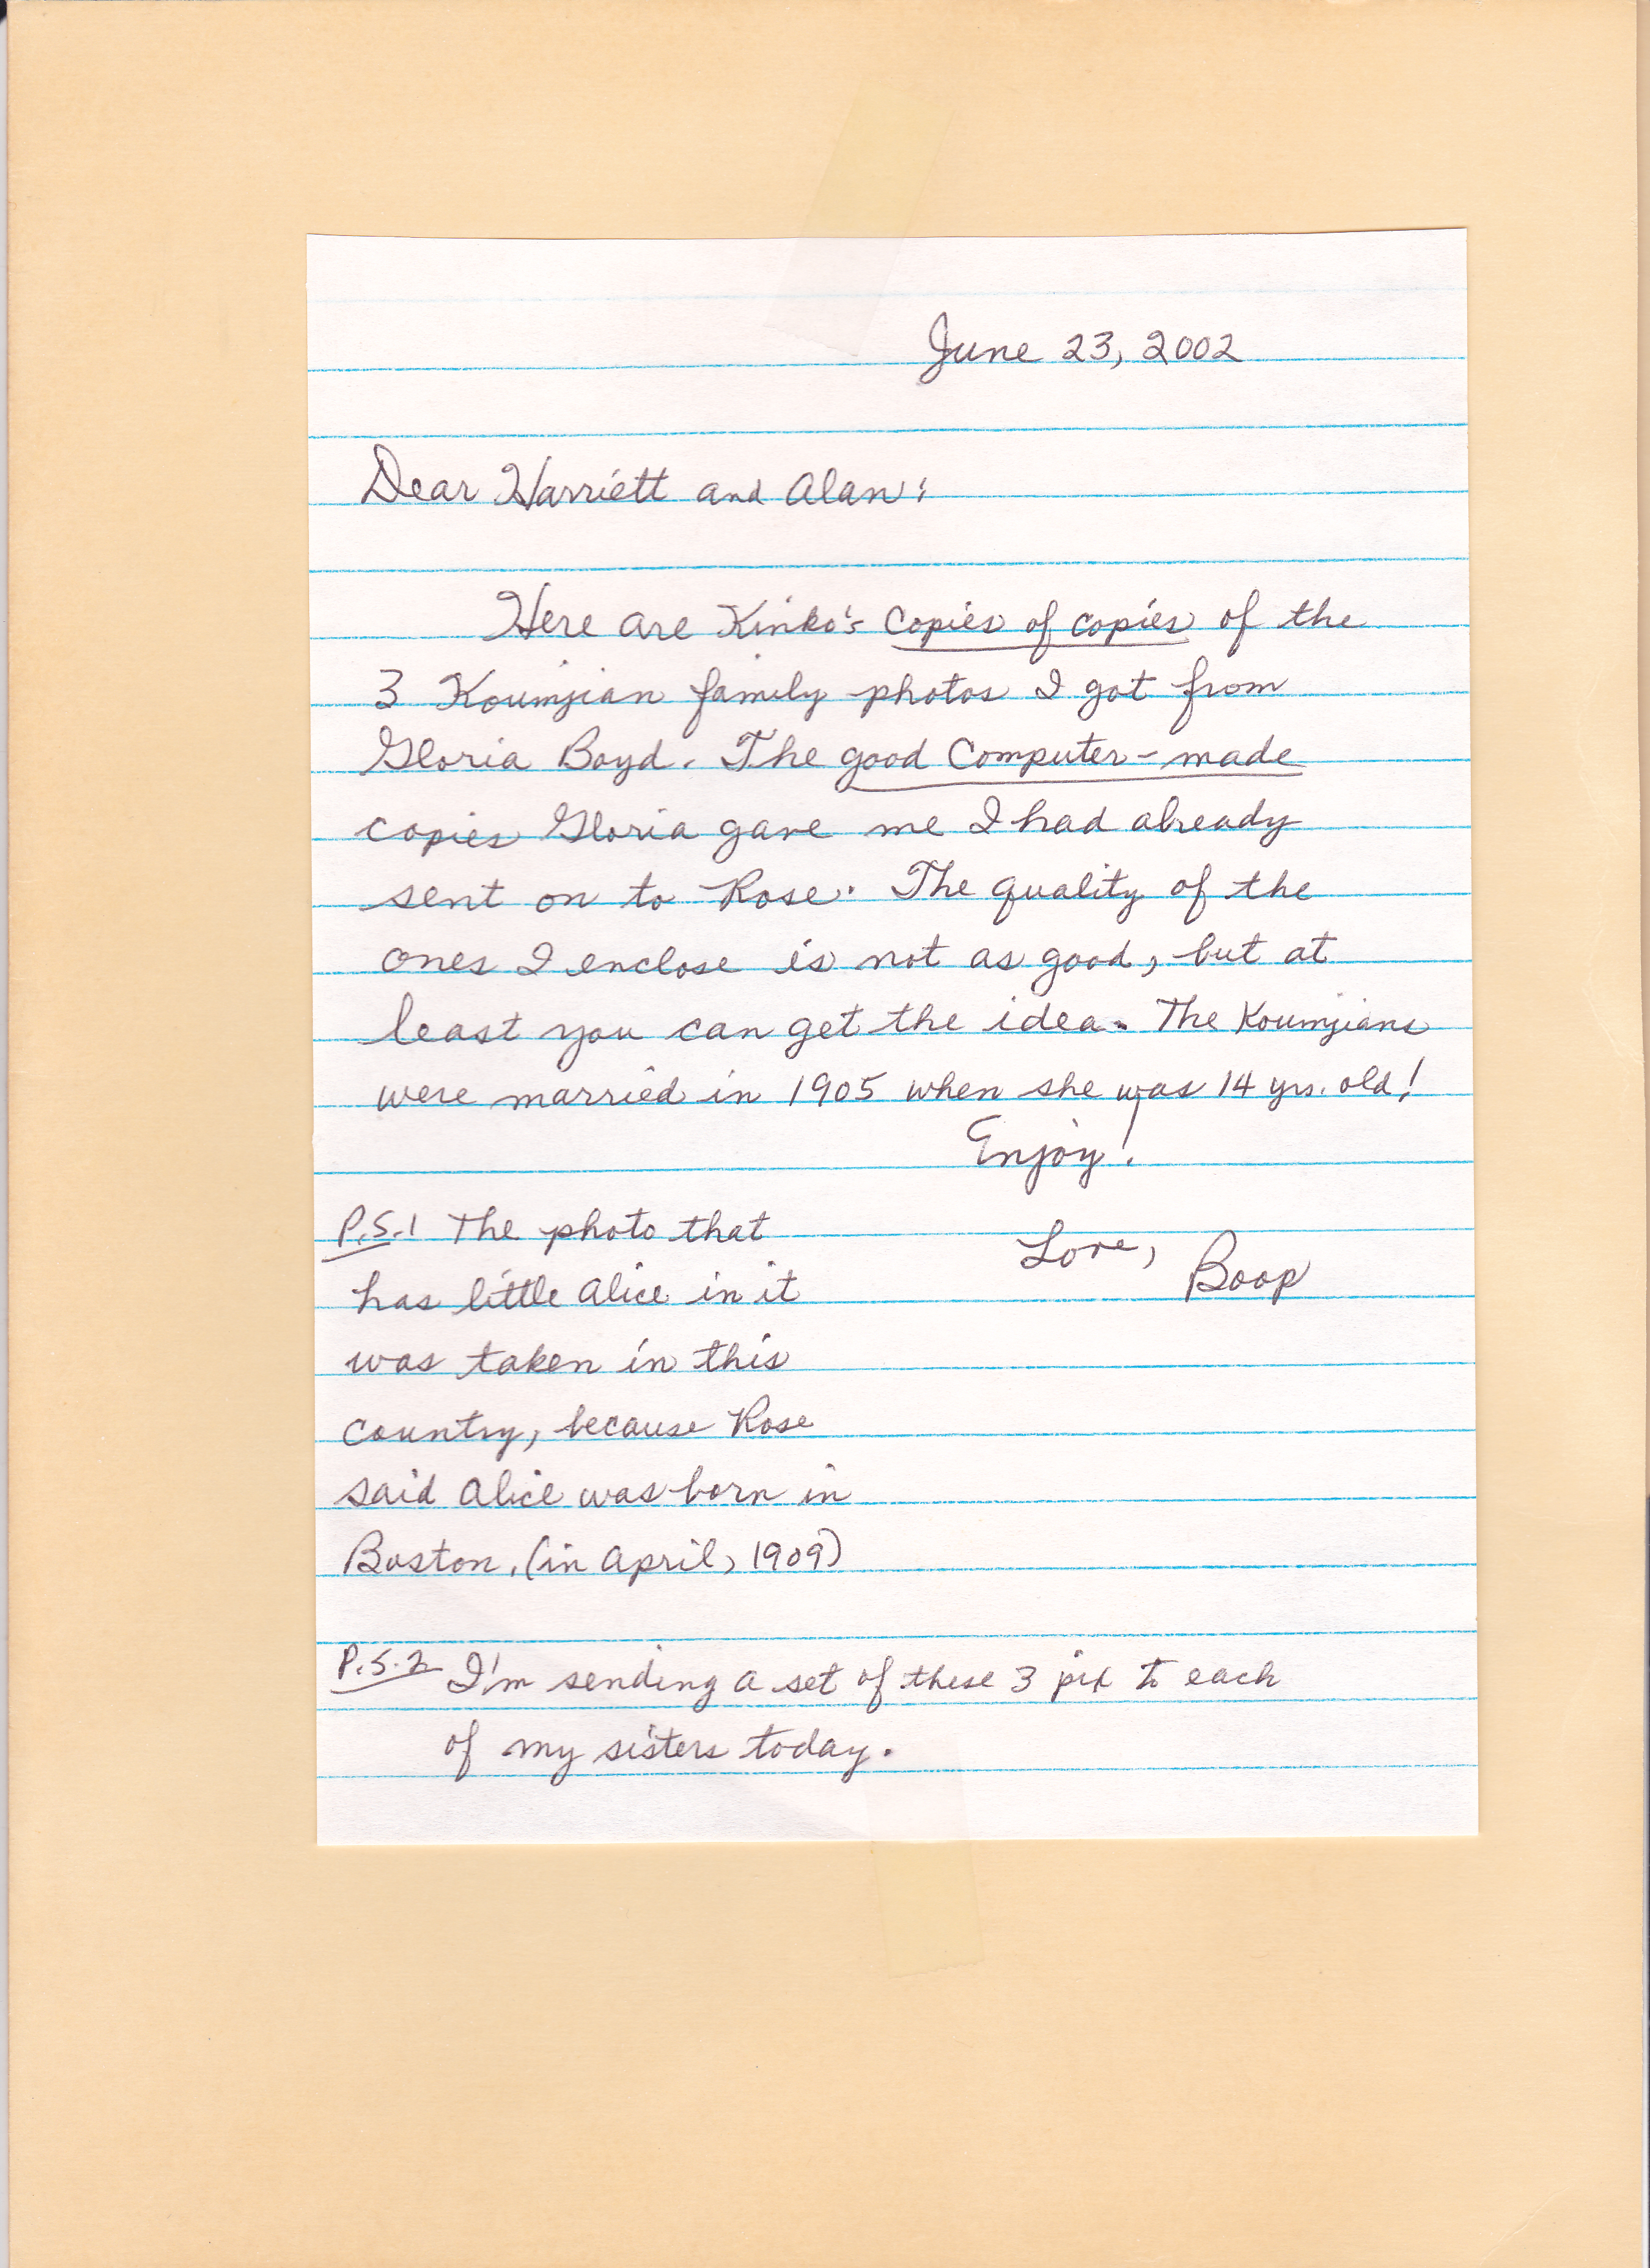 June 23, 2002
Dear Harriett and Alan:
Here are Kinko's copies of copies of the
3 Koumjian family photos I got from
Gloria Boyd. The good computer-made
copies Gloria gave me I had already
sent on to Rose. The quality of the
ones I enclose is not as good, but at
least you can get the idea. The Koumjians
were married in 1905 when she was 14 yrs. old!
Enjoy!
Love, Boop
P.S.1 The photo that
has little Alice in it
was taken in this
country, because Rose
said Alice was born in
Boston. (in April, 1909)
P.S.2 I'm sending a set of these 3 pix to each
of my sisters today.